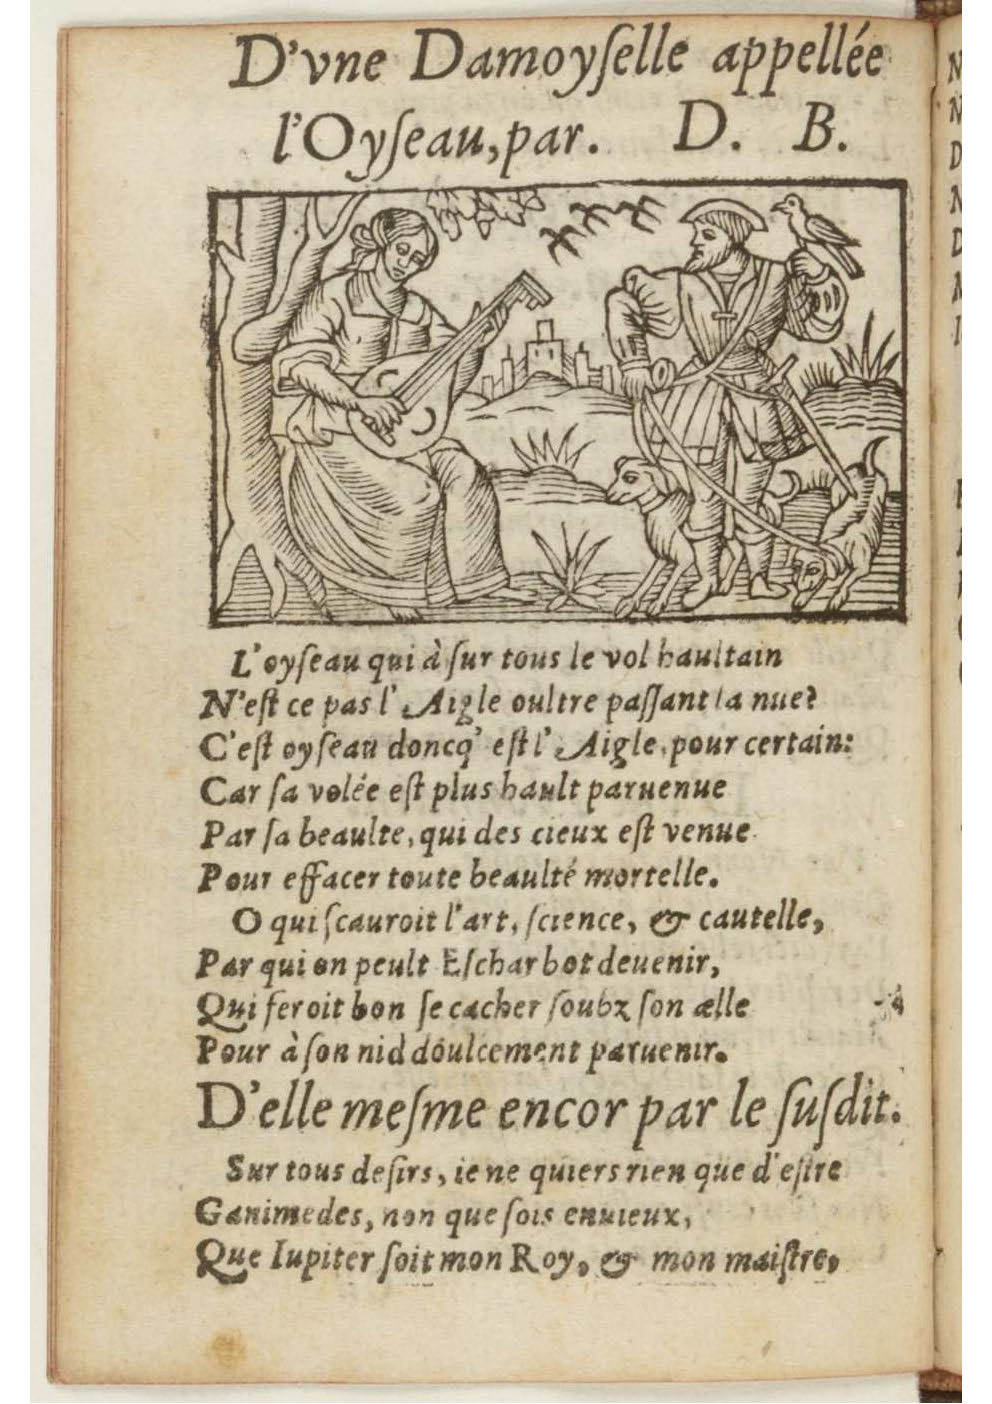 D'vne Damoyſelle appellée
l'Oyſeau, par. D. B.
L'oyſeau qui à ſur tous le vol haultain
N'eſt ce pas l'Aigle oultre paſſant la nue?
C'eſt oyſeau doncq' eſt l'Aigle, pour certain:
Car ſa volée eſt plus hault paruenue
Par ſa beaulte, qui des cieux eſt venue
Pour effacer toute beaulté mortelle.
O qui ſcauroit l'art, ſcience, & cautelle,
Par qui on peult Eſcharbot deuenir,
Qui feroit bon ſe cacher ſoubz ſon ælle
Pour à ſon nid doulcement paruenir.
D'elle meſme encor par le ſuſdit.
Sur tous deſirs, ie ne quiers rien que d'eſtre
Ganimedes, non que ſois enuieux,
Que Iupiter ſoit mon Roy, & mon maiſtre,